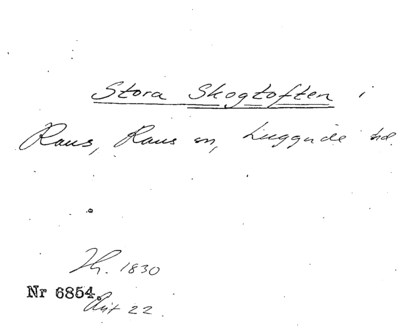 Stora Skogtoften i
Raus, Raus sn, Luggude hd.
Th. 1830
Nr 6854.
Akt 22.